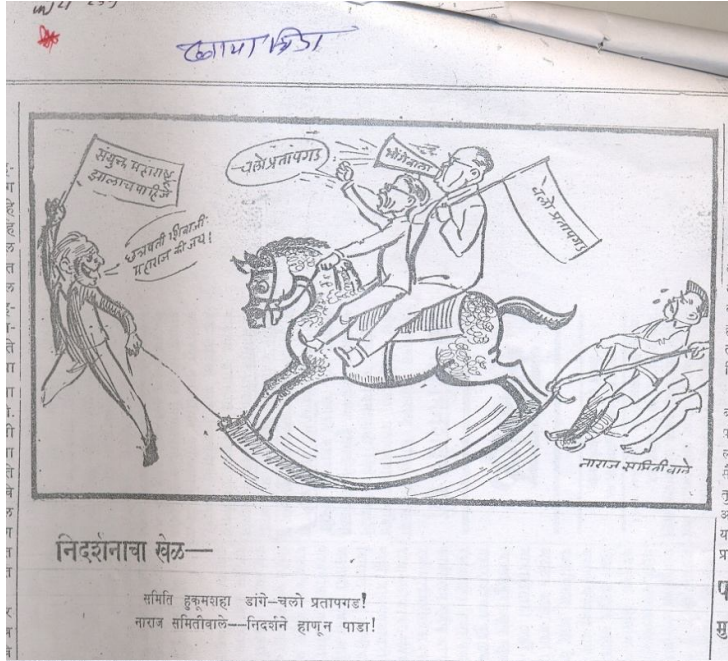 संयुक्त महाराष्ट्र
झालाच पाहिजे
छत्रपती शिवाजी
महाराज की जय!
चलो प्रतापगड
भोंगेवाला
चलो प्रतापगड
नाराज समितीवाले
निदर्शनाचा खेळ—
समिति हुकूमशहा डांगे—चलो प्रतापगड!
नाराज समितीवाले——निदर्शने हाणून पाडा!